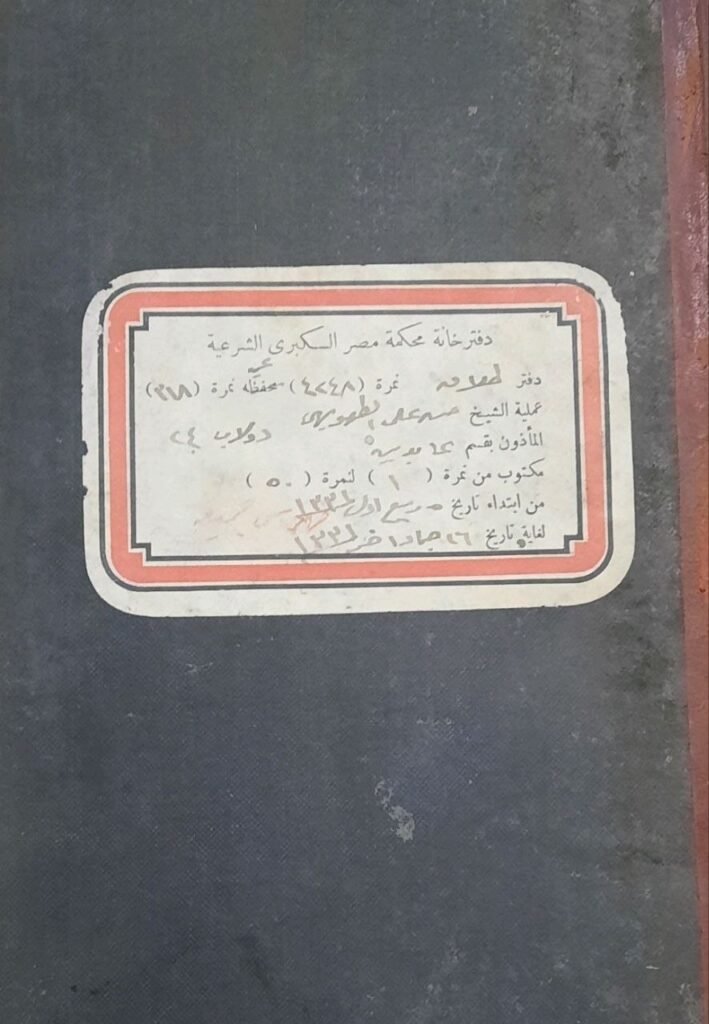 دفترخانة محكمة مصر الكبرى الشرعية
دفتر طلاق نمرة (٤٢٤٨) محفظه نمرة (٣١٨)
عملية الشيخ حسن على الطهويهى
المأذون بقسم عابدين دولاب ٢٤
مكتوب من نمرة (١) لنمرة (٥٠)
من ابتداء تاريخ ٥ ربيع اول ١٣٣١
لغاية تاريخ ٢٦ جماد اخر ١٣٣١